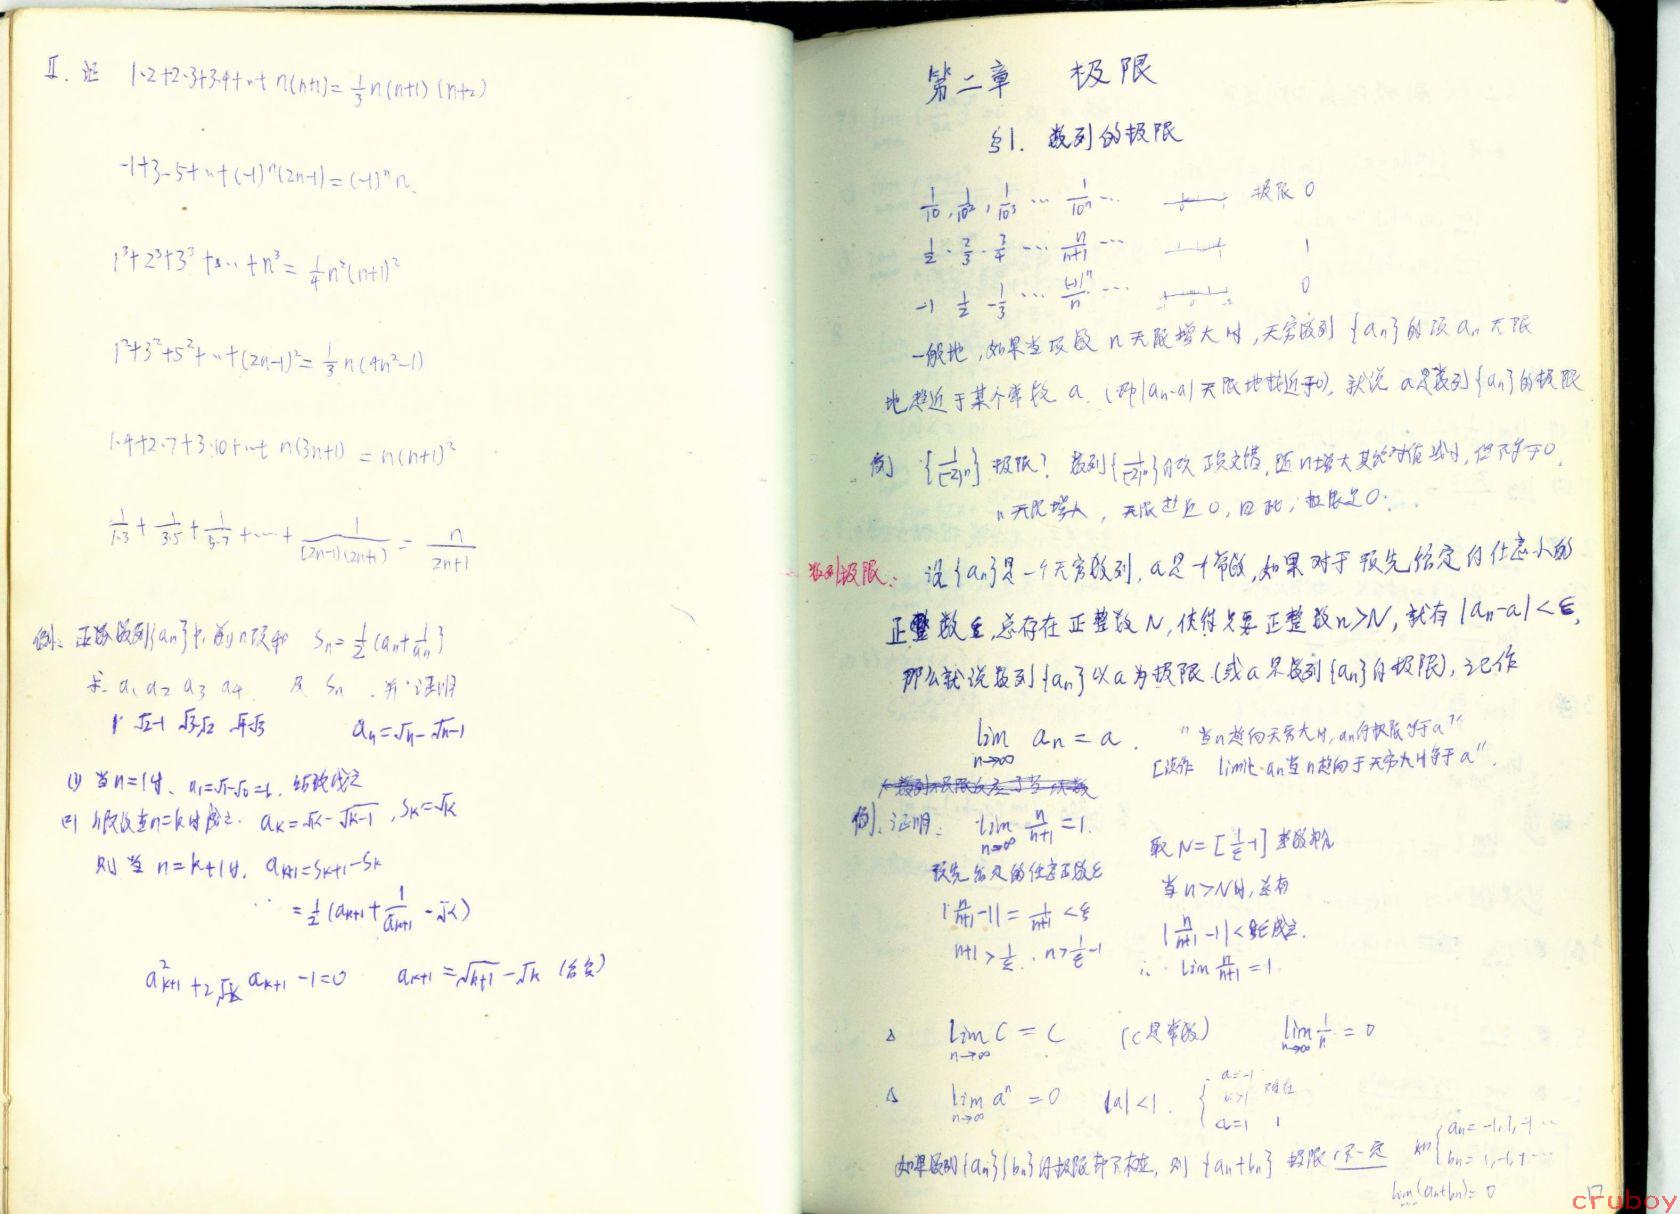 II. 证 1·2+2·3+3·4+…+n(n+1)=1/3 n(n+1)(n+2)
-1+3-5+…+(-1)^n(2n-1)=(-1)^n n.
1³+2³+3³+…+n³=1/4 n²(n+1)²
1²+3²+5²+…+(2n-1)²=1/3 n(4n²-1)
1·4+2·7+3·10+…+n(3n+1)=n(n+1)²
1/1·3+1/3·5+1/5·7+…+1/(2n-1)(2n+1)=n/2n+1
例: 正数数列{an}中, 前n项和 Sn=1/2(an+1/an)
求 a1 a2 a3 a4 及 Sn, 并证明
1 √2-1 √3-√2 √4-√3 an=√n-√n-1
(1) 当n=1时, a1=√1-√0=1, 结论成立
(2) 假设当n=k时成立. ak=√k-√k-1, Sk=√k
则当n=k+1时, ak+1=Sk+1-Sk
=1/2(ak+1+1/ak+1-√k)
a²k+1+2√k ak+1-1=0 ak+1=√k+1-√k (舍负)
第二章 极限
§1. 数列的极限
1/10, 1/10², 1/10³ … 1/10^n … 极限 0
1/2, 2/3, 3/4 … n/n+1 … 1
-1 1/2 -1/3 … (-1)^n/n … 0
一般地, 如果当项数n无限增大时, 无穷数列{an}的项an无限
地趋近于某个常数a. (即|an-a|无限地接近于0), 就说a是数列{an}的极限
例 {1/(-2)^n} 极限? 数列{1/(-2)^n}的项正负交错, 随n增大其绝对值减小, 但不等于0,
n无限增大, 无限趋近0, 因此, 极限是0.
数列极限: 设{an}是一个无穷数列, a是一个常数, 如果对于预先给定的任意小的
正整数ε, 总存在正整数N, 使得只要正整数n>N, 就有|an-a|<ε,
那么就说数列{an}以a为极限 (或a是数列{an}的极限), 记作
lim n→∞ an=a. "当n趋向无穷大时, an的极限等于a"
[读作 limit an当n趋向于无穷大时等于a".
例. 证明: lim n→∞ n/n+1=1.
预先给定的任意正数ε
|n/n+1-1|=1/n+1<ε
n+1>1/ε, n>1/ε-1
取N=[1/ε-1] 整数部分
当n>N时, 总有
|n/n+1-1|<ε成立.
∴ lim n/n+1=1
△ lim n→∞ C=C (C是常数) lim n→∞ 1/n=0
△ lim n→∞ a^n=0 |a|<1. { a=-1 a>1 不存在
a=1 1
如果数列{an}{bn}的极限都不存在, 则{an+bn}极限不一定 如{ an=-1,1,-1…
bn=1,-1,1…
lim(an+bn)=0
17
cruboy